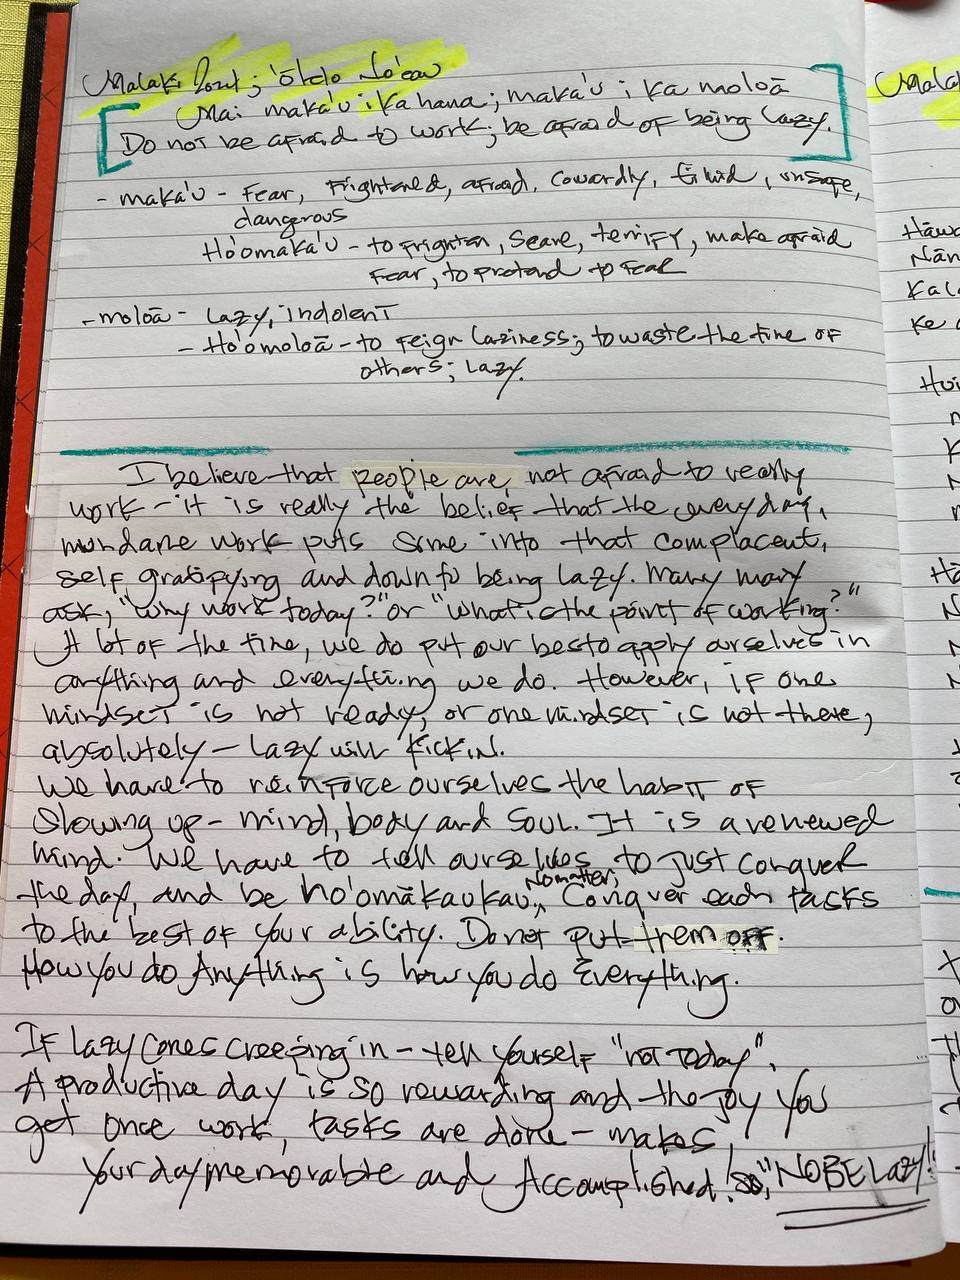 Malaki 'ōlelo No'eau
Mai maka'u i ka hana; maka'u i ka moloā
Do not be afraid to work; be afraid of being lazy.
- maka'u - Fear, Frightened, afraid, cowardly, timid, unsafe,
dangerous
Ho'omaka'u - to frighten, scare, terrify, make afraid
Fear, to pretend to fear
- moloā - Lazy, indolent
- Ho'omoloā - to feign laziness; to waste the time of
others; lazy.
I believe that people are, not afraid to really
work - it is really the belief that the everyday,
mundane work puts some into that complacent,
self gratifying and down to being lazy. Many may
ask, "Why work today?" or "What is the point of working?"
A lot of the time, we do put our best to apply ourselves in
anything and everything we do. However, if one
mindset is not ready, or one mindset is not there,
absolutely - lazy will kick in.
We have to reinforce ourselves the habit of
slowing up - mind, body and soul. It is a renewed
mind. We have to tell ourselves to just conquer
the day, and be ho'omākaukau, No matter, Conquer each tasks
to the best of your ability. Do not put them off.
How you do Anything is how you do Everything.
If lazy comes creeping in - tell yourself "not today".
A productive day is so rewarding and the joy you
get once work, tasks are done - makes
your day memorable and Accomplished! So, "NO BE Lazy!"
Ke